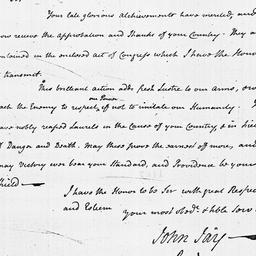 Your late glorious Atchievements have merited, and
now receive the approbation and Thanks of your Country. They a
contained in the enclosed act of Congress which I have the Hono
transmit.
This brilliant action adds fresh Lustre to our Arms, &
each the Enemy to respect
our Power
if not to imitate our Humanity.
have nobly reaped Laurels in the Cause of your Country, & in
Danger and Death. May these prove the earnest of more, and
may Victory ever bear your Standard, and Providence be your
Shield —
I have the Honor to be Sir with great Respec
and Esteem
your most Obdt & hble Serv
John Jay —